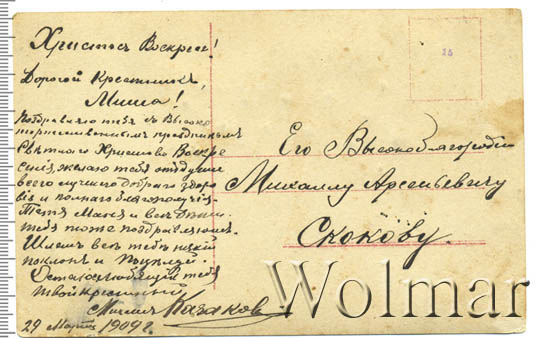 Христосъ Воскресе!
Дорогой Крестникъ,
Миша!
Поздравляю тебя съ Высоко
торжественнымъ праздникомъ
Свѣтлаго Христова Воскре
сенія, желаю тебѣ отъ души
всего лучшаго добраго здоро
вія и полнаго благополучія.
Тетя Маня и всѣ Дѣти
тебя тоже поздравляютъ.
Шлемъ всѣ тебѣ нашъ
поклонъ и поцѣлуй.
Остаюсь любящій тебя
твой крестный
Казаковъ
29 Марта 1909 г.
15
Его Высокоблагородію
Михаилу Арсеньевичу
Скокову.
Wolmar